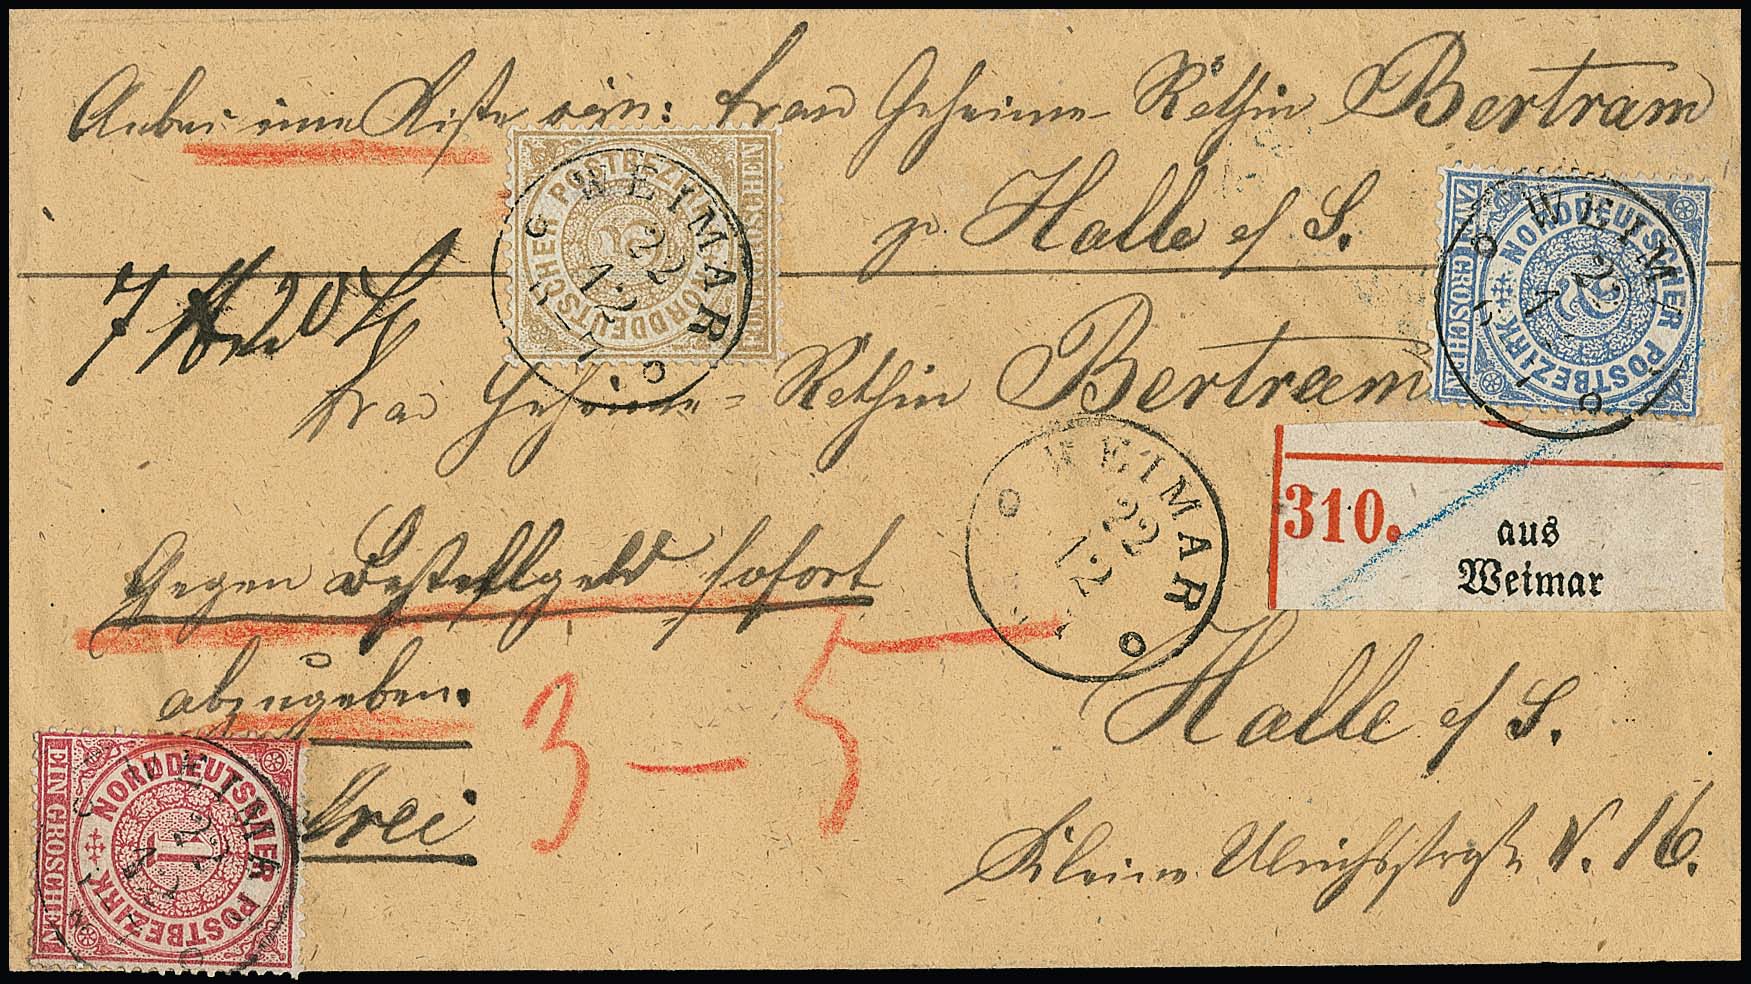 Anbei eine Kiste sign: Frau Geheime-Räthin Bertram
Halle a/S.
7 20
Frau Geheime-Räthin Bertram
Gegen Bestellgeld sofort
abzugeben.
frei
3 — 5
Halle a/S.
Kleine Ulrichsstraße N. 16.
310.
aus
Weimar
WEIMAR
22
12
NORDDEUTSCHER POSTBEZIRK
5
WEIMAR
22
12
NORDDEUTSCHER POSTBEZIRK
2
ZWEI GROSCHEN
WEIMAR
22
NORDDEUTSCHER POSTBEZIRK
1
EIN GROSCHEN
EIN GROSCHEN
22